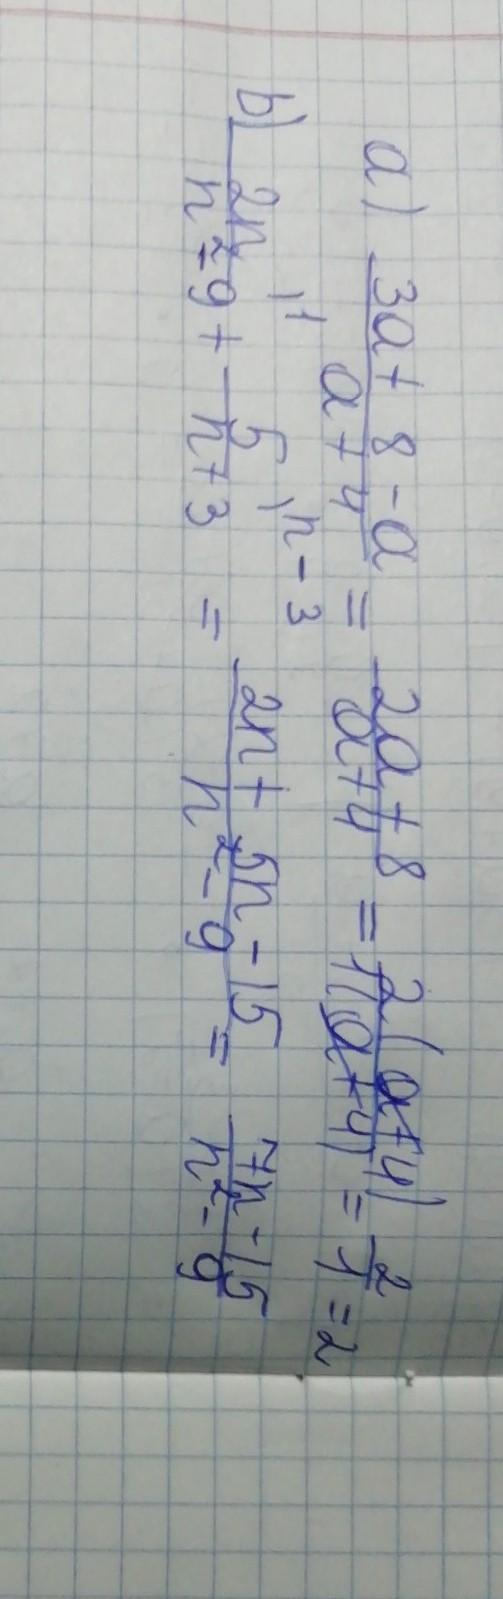 a) (3a + 8 - a)/(a + 4) = (2a + 8)/(a + 4) = 2(a + 4)/1(a + 4) = 2/1 = 2
b) 2n/(n² - 9) \1 + 5/(n + 3) \n - 3 = (2n + 5n - 15)/(n² - 9) = (7n - 15)/(n² - 9)